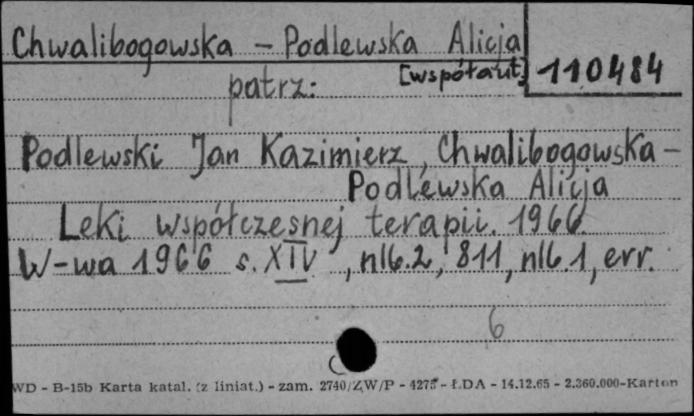 Chwalibogowska - Podlewska Alicja
[współaut.] 110484
patrz:
Podlewski Jan Kazimierz, Chwalibogowska -
Podlewska Alicja
Leki współczesnej terapii. 1966.
W-wa 1966 s. XIV, nlb.2, 811, nlb.1, err.
6
WD - B-15b Karta katal. (z liniat.) - zam. 2740/ZW/P - 4275 - ŁDA - 14.12.65 - 2.360.000-Karton